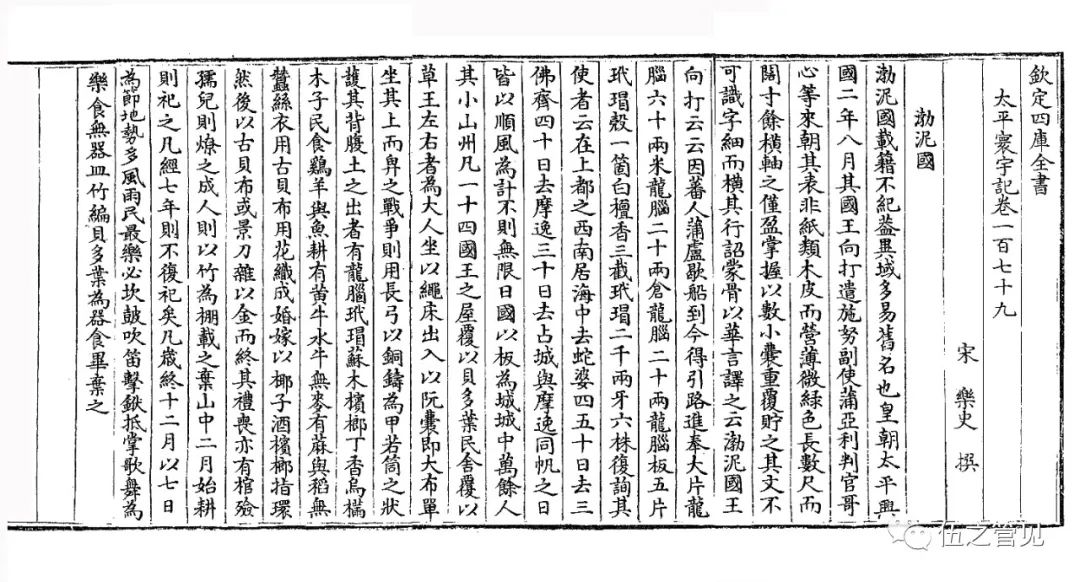 欽定四庫全書
太平寰宇記卷一百七十九
宋 樂史 撰
渤泥國
渤泥國載籍不紀葢異域多易舊名也皇朝太平興
國二年八月其國王向打遣施努副使蒲亞利判官哥
心等來朝其表非紙類木皮而營薄微綠色長數尺而
闊寸餘橫軸之僅盈掌握以數小囊重覆貯之其文不
可識字細而橫其行詔蒙骨以華言譯之云渤泥國王
向打云云因蕃人蒲盧歇船到今得引路進奉大片龍
腦六十兩米龍腦二十兩倉龍腦二十兩龍腦板五片
玳瑁殼一箇白檀香三截玳瑁二千兩牙六株復詢其
使者云在上都之西南居海中去蛇婆四五十日去三
佛齊四十日去摩逸三十日去占城與摩逸同帆之日
皆以順風為計不則無限日國以板為城城中萬餘人
其小山州凡一十四國王之屋覆以貝多葉民舍覆以
草王左右者為大人坐以繩床出入以阮囊即大布單
坐其上而舁之戰爭則用長弓以銅鑄為甲若筒之狀
護其背腹土之出者有龍腦玳瑁蘇木檳榔丁香烏樠
木子民食鷄羊與魚耕有黃牛水牛無麥有蔴與稻無
蠶絲衣用古貝布用花織成婚嫁以椰子酒檳榔指環
然後以古貝布或景刀雜以金而終其禮喪亦有棺殮
孺兒則燎之成人則以竹為棚載之棄山中二月始耕
則祀之凡經七年則不復祀矣凡歲終十二月以七日
為節地勢多風雨民最樂必坎鼓吹笛擊鈸抵掌歌舞為
樂食無器皿竹編貝多葉為器食畢棄之
伍之管见